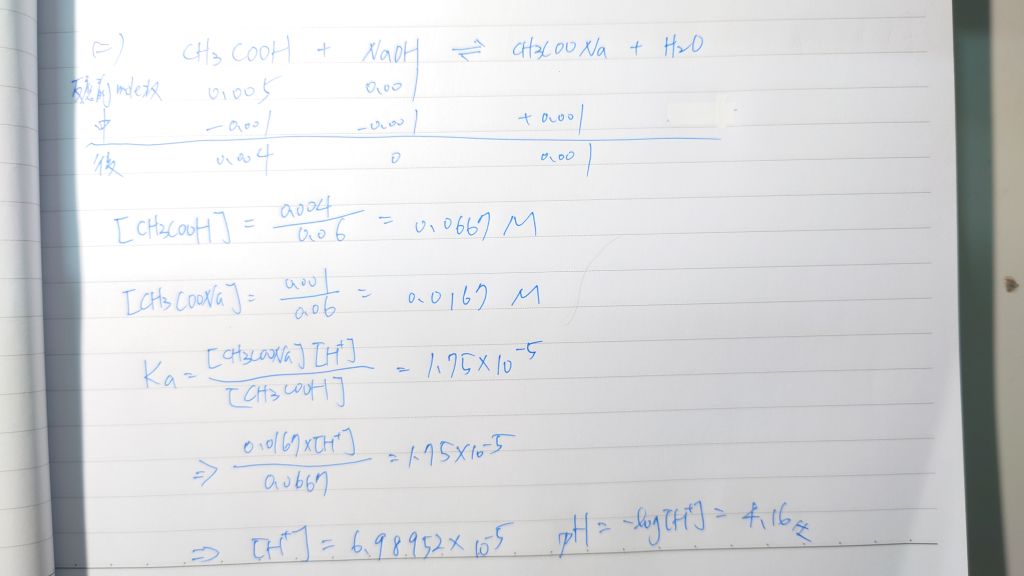 (二) CH3COOH + NaOH ⇌ CH3COONa + H2O
反應前mole數 0.005 0.001
中 -0.001 -0.001 +0.001
後 0.004 0 0.001
[CH3COOH] = 0.004/0.06 = 0.0667 M
[CH3COONa] = 0.001/0.06 = 0.0167 M
Ka = [CH3COONa][H+]/[CH3COOH] = 1.75×10^-5
⇒ 0.0167×[H+]/0.0667 = 1.75×10^-5
⇒ [H+] = 6.98952×10^-5 pH = -log[H+] = 4.16